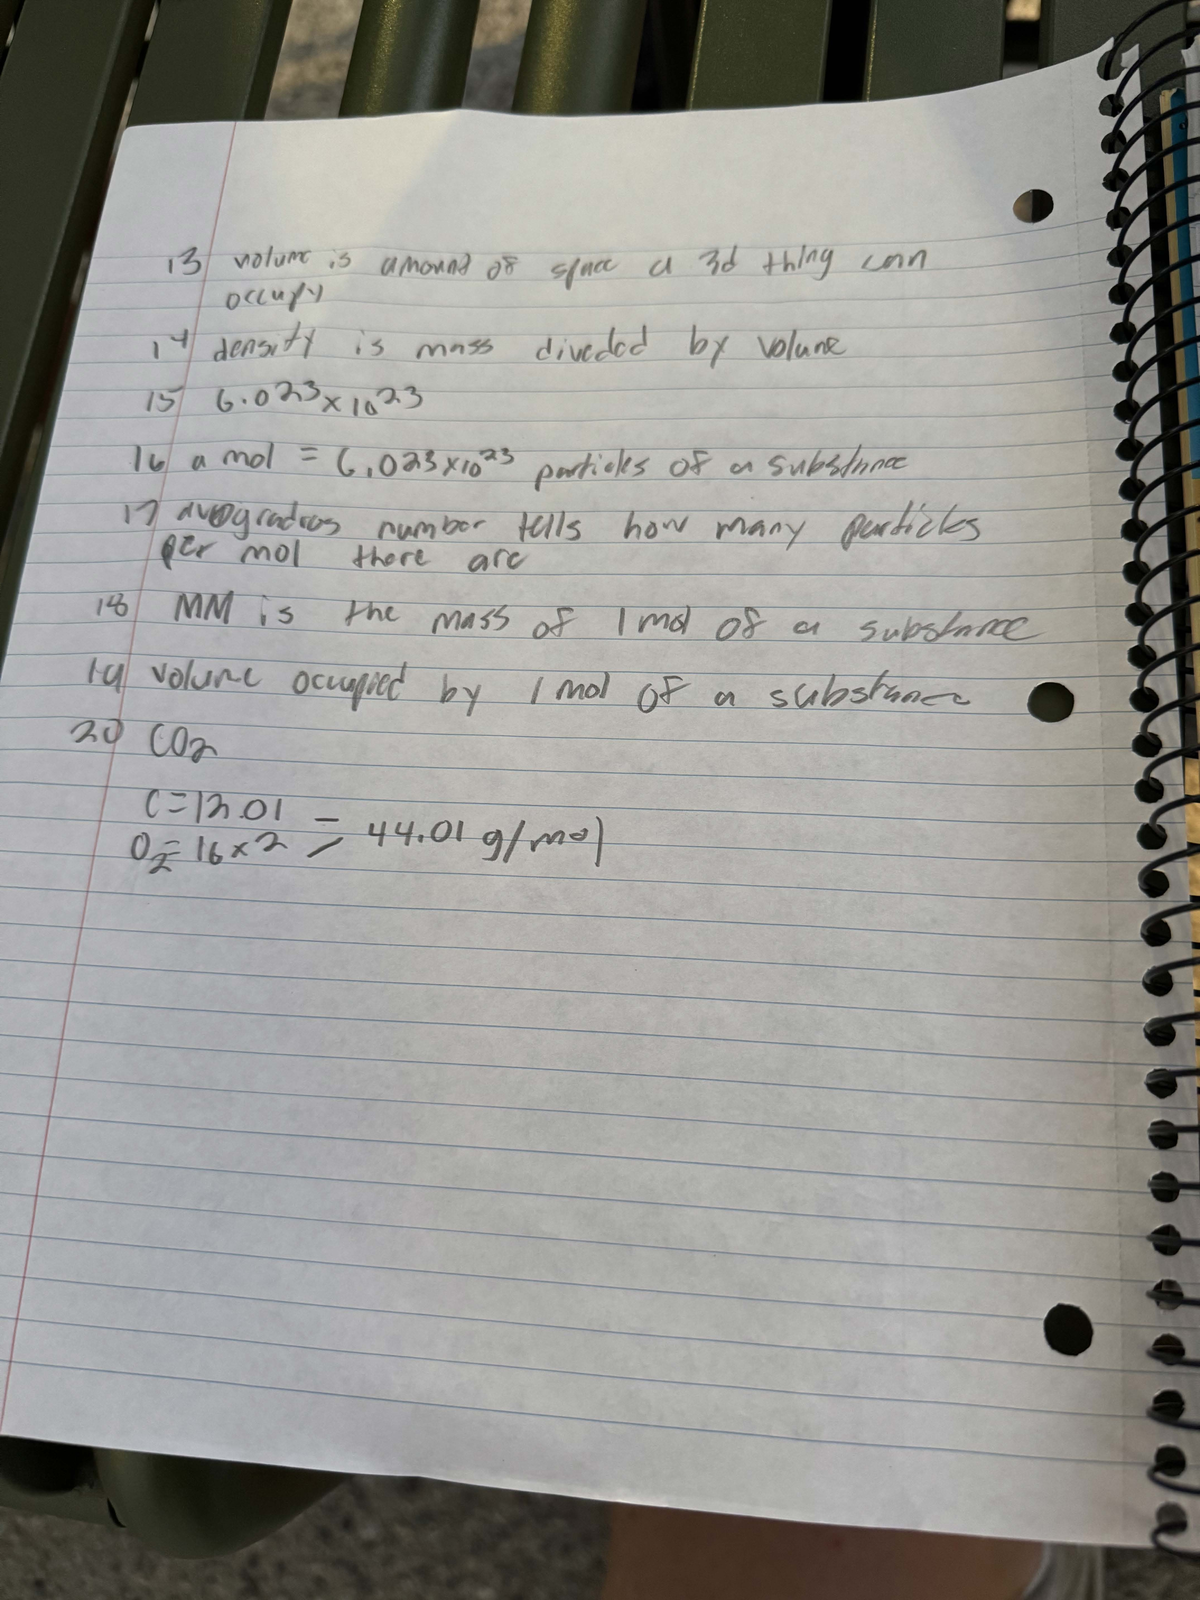 13 volume is amound of space a 3d thing can
occupy
14 density is mass diveded by volume
15 6.023x10^23
16 a mol = 6.023x10^23 particles of a substance
17 avogradros number tells how many particles
per mol there are
18 MM is the mass of 1 mol of a substance
19 volume occupied by 1 mol of a substance
20 CO2
C=12.01
O2=16x2 = 44.01 g/mol